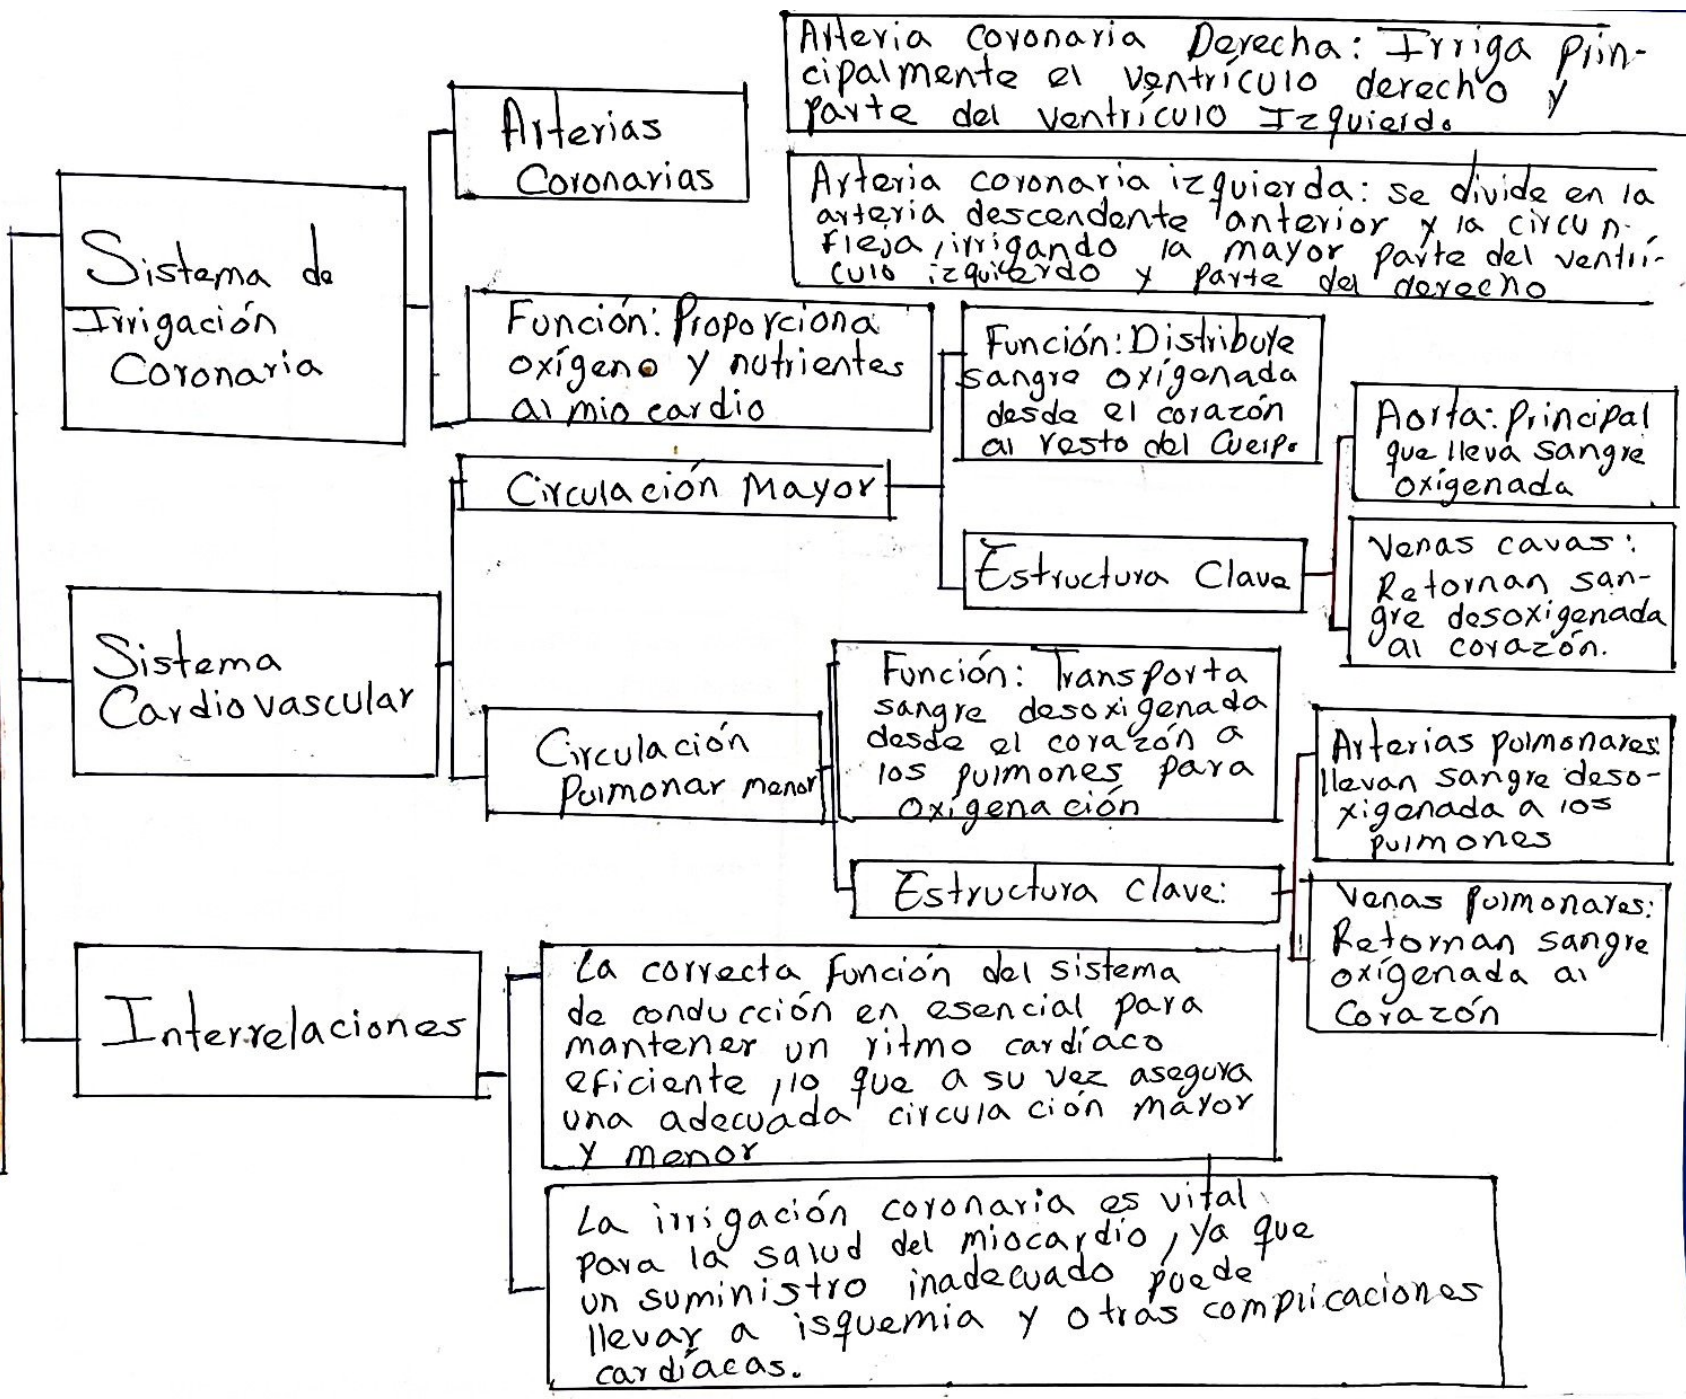 Sistema de
Irrigación
Coronaria
Arterias
Coronarias
Arteria coronaria Derecha: Irriga prin-
cipalmente el ventrículo derecho y
parte del ventrículo Izquierdo
Arteria coronaria izquierda: se divide en la
arteria descendente anterior y la circun-
fleja, irrigando la mayor parte del ventrí-
culo izquierdo y parte del derecho
Función: Proporciona
oxígeno y nutrientes
al mio cardio
Sistema
Cardiovascular
Circulación Mayor
Función: Distribuye
sangre oxigenada
desde el corazón
al resto del Cuerpo
Estructura Clave
Aorta: principal
que lleva sangre
oxigenada
Venas cavas:
Retornan san-
gre desoxigenada
al corazón.
Circulación
Pulmonar menor
Función: Transporta
sangre desoxigenada
desde el corazón a
los pulmones para
oxígenación
Estructura clave:
Arterias pulmonares:
llevan sangre deso-
xigenada a los
pulmones
Venas pulmonares:
Retornan sangre
oxígenada al
Corazón
Interrelaciones
La correcta función del sistema
de conducción en esencial para
mantener un ritmo cardíaco
eficiente, lo que a su vez asegura
una adecuada circulación mayor
y menor
La irrigación coronaria es vital
para la salud del miocardio, ya que
un suministro inadecuado puede
llevar a isquemia y otras complicaciones
cardíacas.